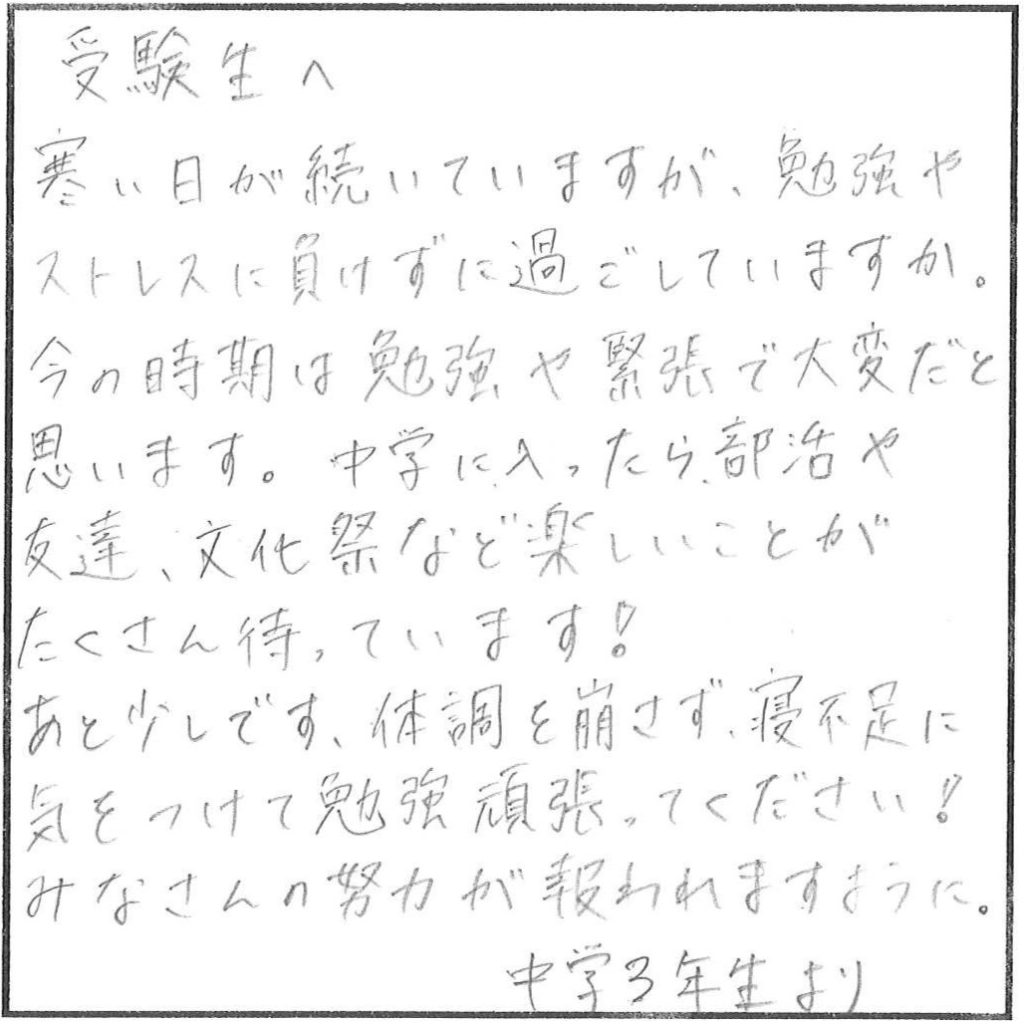 受験生へ
寒い日が続いていますが、勉強や
ストレスに負けずに過ごしていますか。
今の時期は勉強や緊張で大変だと
思います。中学に入ったら、部活や
友達、文化祭など楽しいことが
たくさん待っています！
あと少しです、体調を崩さず、寝不足に
気をつけて勉強頑張ってください！
みなさんの努力が報われますように。
中学3年生より